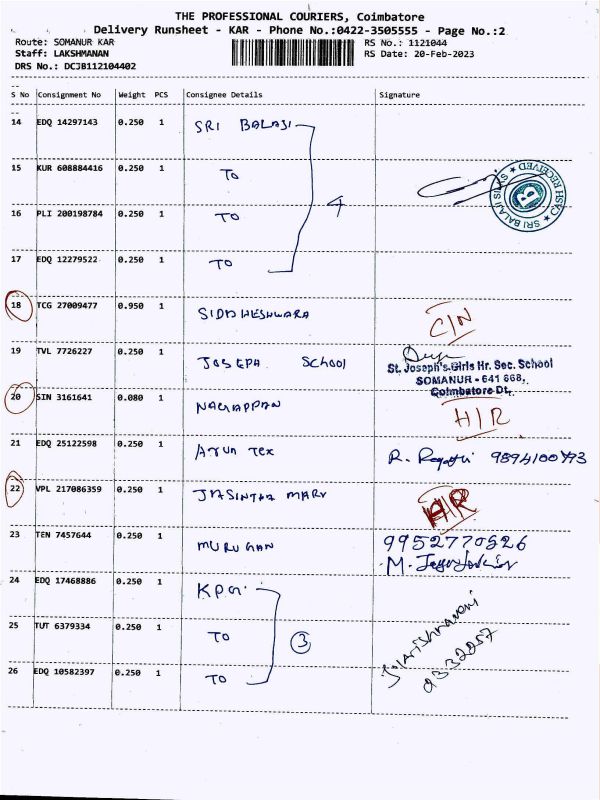 THE PROFESSIONAL COURIERS, Coimbatore
Delivery Runsheet - KAR - Phone No.:0422-3505555 - Page No.:2
Route: SOMANUR KAR RS No.: 1121044
Staff: LAKSHMANAN RS Date: 20-Feb-2023
DRS No.: DCJB112104402
S No Consignment No Weight PCS Consignee Details Signature
14 EDQ 14297143 0.250 1 SRI BALAJI
15 KUR 608884416 0.250 1 TO
16 PLI 200198784 0.250 1 TO 4
17 EDQ 12279522 0.250 1 TO
SRI BALAJI SILKS ★ CASH RECEIVED ★
B
18 TCG 27009477 0.950 1 SIDDHESHWARA C/N
19 TVL 7726227 0.250 1 JOSEPH School
St. Joseph's Girls Hr. Sec. School
SOMANUR - 641 668,
Coimbatore Dt.
20 SIN 3161641 0.080 1 NAGAPPAN H/R
21 EDQ 25122598 0.250 1 ARUN TEX R.
22 VPL 217086359 0.250 1 JASINTHA MARY H/R
23 TEN 7457644 0.250 1 MURUGAN 9952770826
M.
24 EDQ 17468886 0.250 1 KPG
25 TUT 6379334 0.250 1 TO 3
26 EDQ 10582397 0.250 1 TO